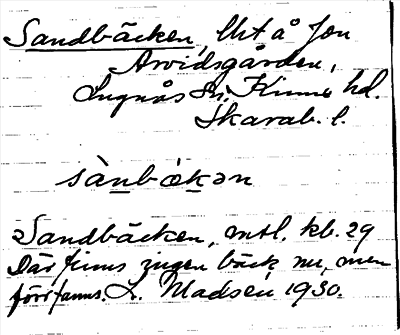 Sandbäcken, Uht å Jon
Arvidsgården,
Lugnås sn, Kinne hd.
Skarab. l.
sànbækən
Sandbäcken, mtl. kb. 29
Där finns ingen bäck nu, men
förr fanns. L. Madsén 1930.